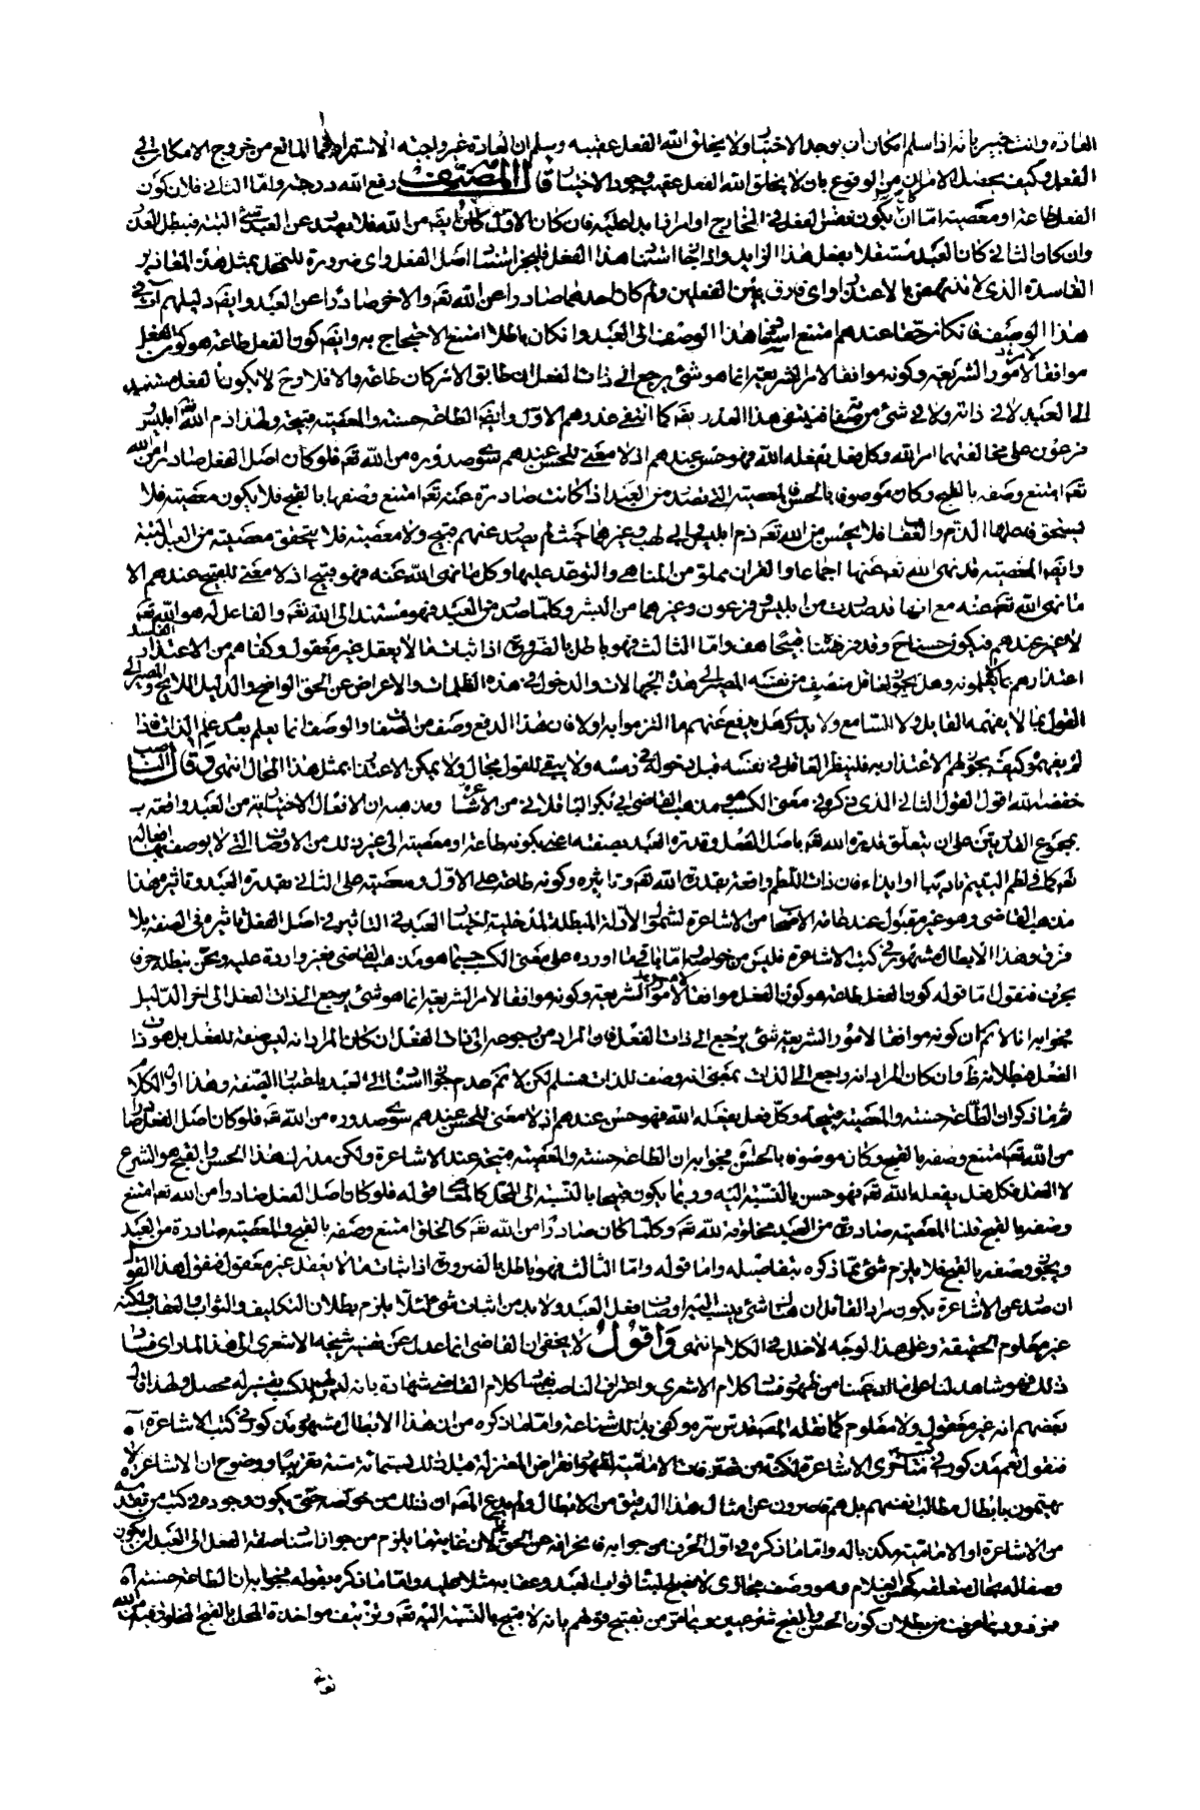 العادة وانت خبير بانه اذا سلم امكان ان يوجد الاختيار ولا يخلق الله الفعل عقيبه وسلم ان العادة غير واجبة الاستمرار فما المانع من خروج الامكان الى
الفعل وكيف يحصل الامان من الوقوع بان لا يخلق الله الفعل عقيب وجود الاختيار قال المصنف رفع الله درجته واما الثاني فلان كون
الفعل طاعة او معصية اما ان يكون نفس الفعل في الخارج او امرا زايدا عليه فان كان الاول كان ايضا من الله فلا يصدر عن العبد شيء البتة فيبطل العذر
وان كان الثاني كان العبد مستقلا بفعل هذا الزايد واذا جاز اسناد هذا الفعل فليجز اسناد اصل الفعل واي ضرورة للتمحل بمثل هذه المعاذير
الفاسدة التي لا تنهض بالاعتذار واي فارق بين الفعلين ولم كان احدهما صادرا عن الله تعه والاخر صادرا عن العبد وايضه دليلهم آت في
هذا الوصف فان كان حقا عندهم امتنع استناد هذا الوصف الى العبد وان كان باطلا امتنع الاحتجاج به وايضه كون الفعل طاعة هو كون الفعل
موافقا لامور الشريعة وكونه موافقا لامر الشريعة انما هو شيء يرجع الى ذات الفعل ان طابق الامر كان طاعة والا فلا وح لا يكون الفعل مستندا
الى العبد لا في ذاته ولا في شيء من صفاته فينتفي هذا العذر ايضه كما انتفى عذرهم الاول وايضه الطاعة حسنة والمعصية قبيحة ولهذا ذم الله ابليس و
فرعون على مخالفتهما امر الله وكل فعل يفعله الله فهو حسن عندهم اذ لا معنى للحسن عندهم سوى صدوره من الله تعه فلو كان اصل الفعل صادرا من الله
تعه امتنع وصفه بالقبح وكان موصوفا بالحسن فالمعصية التي تصدر من العبد اذا كانت صادرة عنه تعه امتنع وصفها بالقبح فلا يكون معصية فلا
يستحق فاعلها الذم والعقاب فلا يحسن من الله تعه ذم ابليس وابي لهب وغيرهما حيث لم يصدر عنهم قبيح ولا معصية فلا يتحقق معصية من العبد البتة
وايضه المعصية قد نهى الله تعه عنها اجماعا والقرآن مملو من المناهي والتوعد عليها وكل ما نهى الله عنه فهو قبيح اذ لا معنى للقبيح عندهم الا
ما نهى الله تعه عنه مع انها قد صدرت من ابليس وفرعون وغيرهما من البشر وكلما صدر من العبد فهو مستند الى الله تعه والفاعل له هو الله تعه
لا غير عندهم فيكون حسنا ح وقد فرضناه قبيحا هف واما الثالث فهو باطل بالضرورة اذ اثبات ما لا يعقل غير معقول وكفاهم من الاعتذار الفاسد
اعتذارهم بما لا يعلمونه وهل يجوز لعاقل منصف من نفسه المصير الى هذه الجهالات والدخول في هذه الظلمات والاعراض عن الحق الواضح والدليل اللايح والمصير الى
القول بما لا يفهمه القايل ولا السامع ولا يدري هل يدفع عنهم ما التزموا به او لا فان هذا الدفع وصف من صفاته والوصف انما يعلم بعد علم الذات فاذا
لم يفهموه كيف يجوز لهم الاعتذار به فلينظر العاقل في نفسه قبل دخوله في رمسه ولا يبقى للقول مجال ولا يمكن الاعتذار بمثل هذا المحال انتهى وقال الناصب
خفضه الله اقول القول الثاني الذي ذكره في معنى الكسب هو مذهب القاضي ابي بكر الباقلاني من الاشاعرة ومذهبه ان الافعال الاختيارية من العبد واقعة بـ
بمجموع القدرتين على ان يتعلق قدرة الله تعه باصل الفعل وقدرة العبد بصفته اعني بكونه طاعة او معصية الى غير ذلك من الاوصاف التي لا يوصف بها افعاله
تعه كما في لطم اليتيم تاديبا او ايذاء فان ذات اللطم واقعة بقدرة الله تعه وتاثيره وكونه طاعة على الاول ومعصية على الثاني بقدرة العبد وتاثيره هذا
مذهب القاضي وهو غير مقبول عند عامة الاصحاب من الاشاعرة لشمول الادلة المبطلة لمدخلية اختيار العبد في التاثير في اصل الفعل تاثيره في الصفة بلا
فرق وهذا الابطال مشهور في كتب الاشاعرة فليس من خواصه اما باقي ما اورده على معنى الكسب حيثما هو مذهب القاضي فغير واردة عليه ونحن نبطله حرفا
بحرف فنقول اما قوله كون الفعل طاعة هو كون الفعل موافقا لامور الشريعة وكونه موافقا لامر الشريعة انما هو شيء يرجع الى ذات الفعل الى اخر الدليل
فجوابه انا لا نم ان كونه موافقا لامور الشريعة شيء يرجع الى ذات الفعل فان المراد من رجوعه الى ذات الفعل ان كان المراد انه ليس صفة للفعل بل هو ذات
الفعل فبطلانه ظ وان كان المراد انه راجع الى الذات بمعنى انه وصف للذات مسلم لكن لا نم عدم جواز اسناده الى العبد باعتبار الصفة وهذا اول الكلام
ثم ما ذكر ان الطاعة حسنة والمعصية قبيحة وكل فعل يفعله الله فهو حسن عندهم اذ لا معنى للحسن عندهم سوى صدوره من الله تعه فلو كان اصل الفعل صادرا
من الله تعه امتنع وصفه بالقبح وكان موصوفا بالحسن فجوابه ان الطاعة حسنة والمعصية قبيحة عند الاشاعرة ولكن مدرك هذا الحسن والقبح هو الشرع
لا العقل فكل فعل يفعله الله تعه فهو حسن بالنسبة اليه وربما يكون قبيحا بالنسبة الى المحل كالمعاصي فقوله فلو كان اصل الفعل صادرا من الله تعه امتنع
وصفه بالقبح قلنا المعصية صادرة من العبد مخلوقة لله تعه وكلما كان صادرا من الله تعه كالخلق امتنع وصفه بالقبح والمعصية صادرة من العبد
ويجوز وصفه بالقبح فلا يلزم شيء مما ذكره بتفاصيله واما قوله واما الثالث فهو باطل بالضرورة اذ اثبات ما لا يعقل غير معقول فنقول هذا القول
ان صدر عن الاشاعرة يكون مراد القائل ان هناك شيء ينسب اليه اوصاف فعل العبد ولا بد من اثبات شيء لئلا يلزم بطلان التكليف والثواب والعقاب ولكنه
غير معلوم الحقيقة وعلى هذا الوجه لا خلل في الكلام انتهى واقول لا يخفى ان القاضي انما عدل عن تفسير شيخه الاشعري الى هذا لما راى فساد
ذلك فهو شاهد لنا على ما ادعينا من ظهور فساد كلام الاشعري واعتراف الناصب بفساد كلام القاضي شهادة بانه ليس للكسب تفسير له محصل ولهذا قال
بعضهم انه غير معقول ولا معلوم كما نقله المصنف قدس سره وكفى بذلك شناعة واما ما ذكره من ان هذا الابطال مشهور مذكور في كتب الاشاعرة اه
فنقول نعم مذكور في كتب متاخري الاشاعرة لكنه من تصرفات الامامية لظهور انقراض المعتزلة قبل ذلك بستمائة سنة تقريبا ووضوح ان الاشاعرة لا
يهتمون بابطال مطالب انفسهم بل هم قاصرون عن امثال هذا الدقيق من الابطال ولم يدع المصه ان ذلك من خواصه حتى يكون وجوده في كتب من تقدمه
من الاشاعرة او الامامية مكذبا له واما ما ذكره في اول الحرف من جوابه فانحرافه عن الحق ظ لان غاية ما يلزم من جواز اسناد صفة الفعل الى العبد ان يكون
وصفا له بحال متعلقه كحسن الغلام وهو وصف مجازي لا يصلح لبناء ثواب العبد وعقابه مثلا عليه واما ما ذكره بقوله فجوابه ان الطاعة حسنة آه
فمردود بما عرفت من بطلان كون الحسن والقبح شرعيين وبما مر من تقبيح قولهم بانه لا قبيح بالنسبة اليه تعه وتزييف مواخذة المحل بالقبح المخلوق فيه من الله